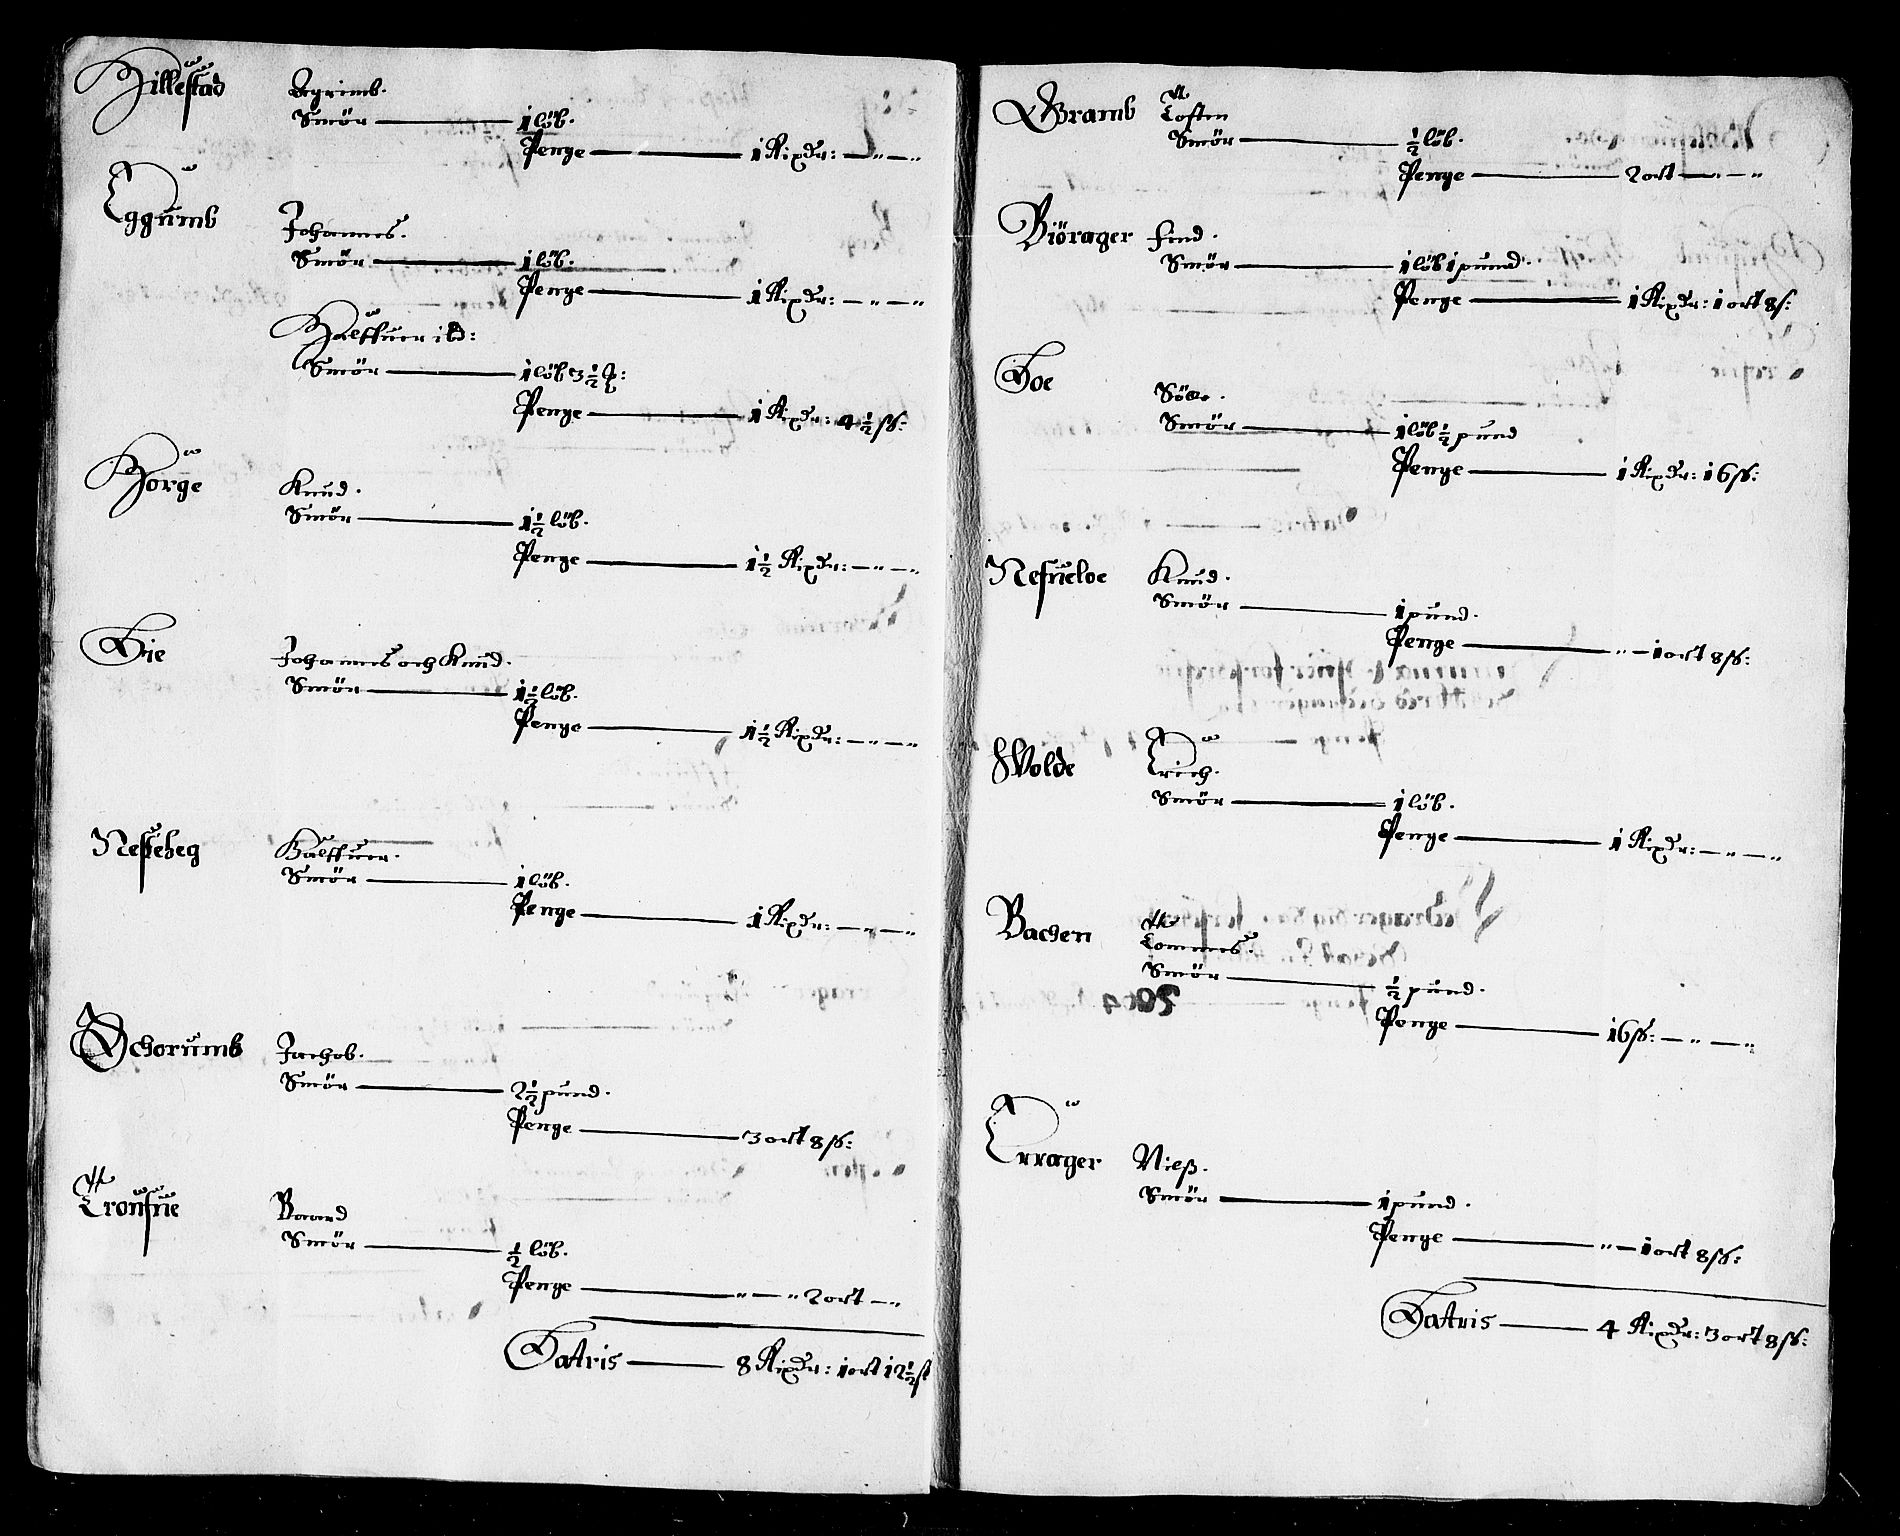 Hillestad Agrimb.
Smör 1 löb.
Penge 1 Rixdr: — " — "
Eggumb Johannes.
Smör 1 löb.
Penge 1 Rixdr: — " — "
Halffuer ibd:
Smör 1 löb 3½
Penge 1 Rixdr: 4½ ß:
Horge Knud.
Smör 1½ löb.
Penge 1½ Rixdr: — " — "
Bije Johannes och Knud.
Smör 1½ löb.
Penge 1½ Rixdr: — " — "
Neseheg Halffuer.
Smör 1 löb.
Penge 1 Rixdr: — " — "
Schorumb Jachob.
Smör 2½ pund.
Penge 3 ort 8 ß:
Trousue Baard
Smör ½ löb.
Penge " — " 2 ort — "
Lateris 8 Rixdr: 1 ort 12½ ß
Gramb Tosten
Smör ½ löb.
Penge 2 ort — " — "
Biörager find.
Smör 1 löb 1 pund.
Penge 1 Rixdr: 1 ort 8 ß:
Boe
Smör 1 löb ½ pund
Penge 1 Rixdr: 16 ß:
Nesueloe Knud.
Smör 1 pund.
Penge " — 1 ort 8 ß:
Wolde Erich.
Smör 1 löb.
Penge 1 Rixdr: — " — "
Bachen Tommes.
Smör ½ pund.
Penge 16 ß: — " — "
Errager Nielß.
Smör 1 pund.
Penge " — 1 ort 8 ß:
Lateris 4 Rixdr: 3 ort 8 ß: